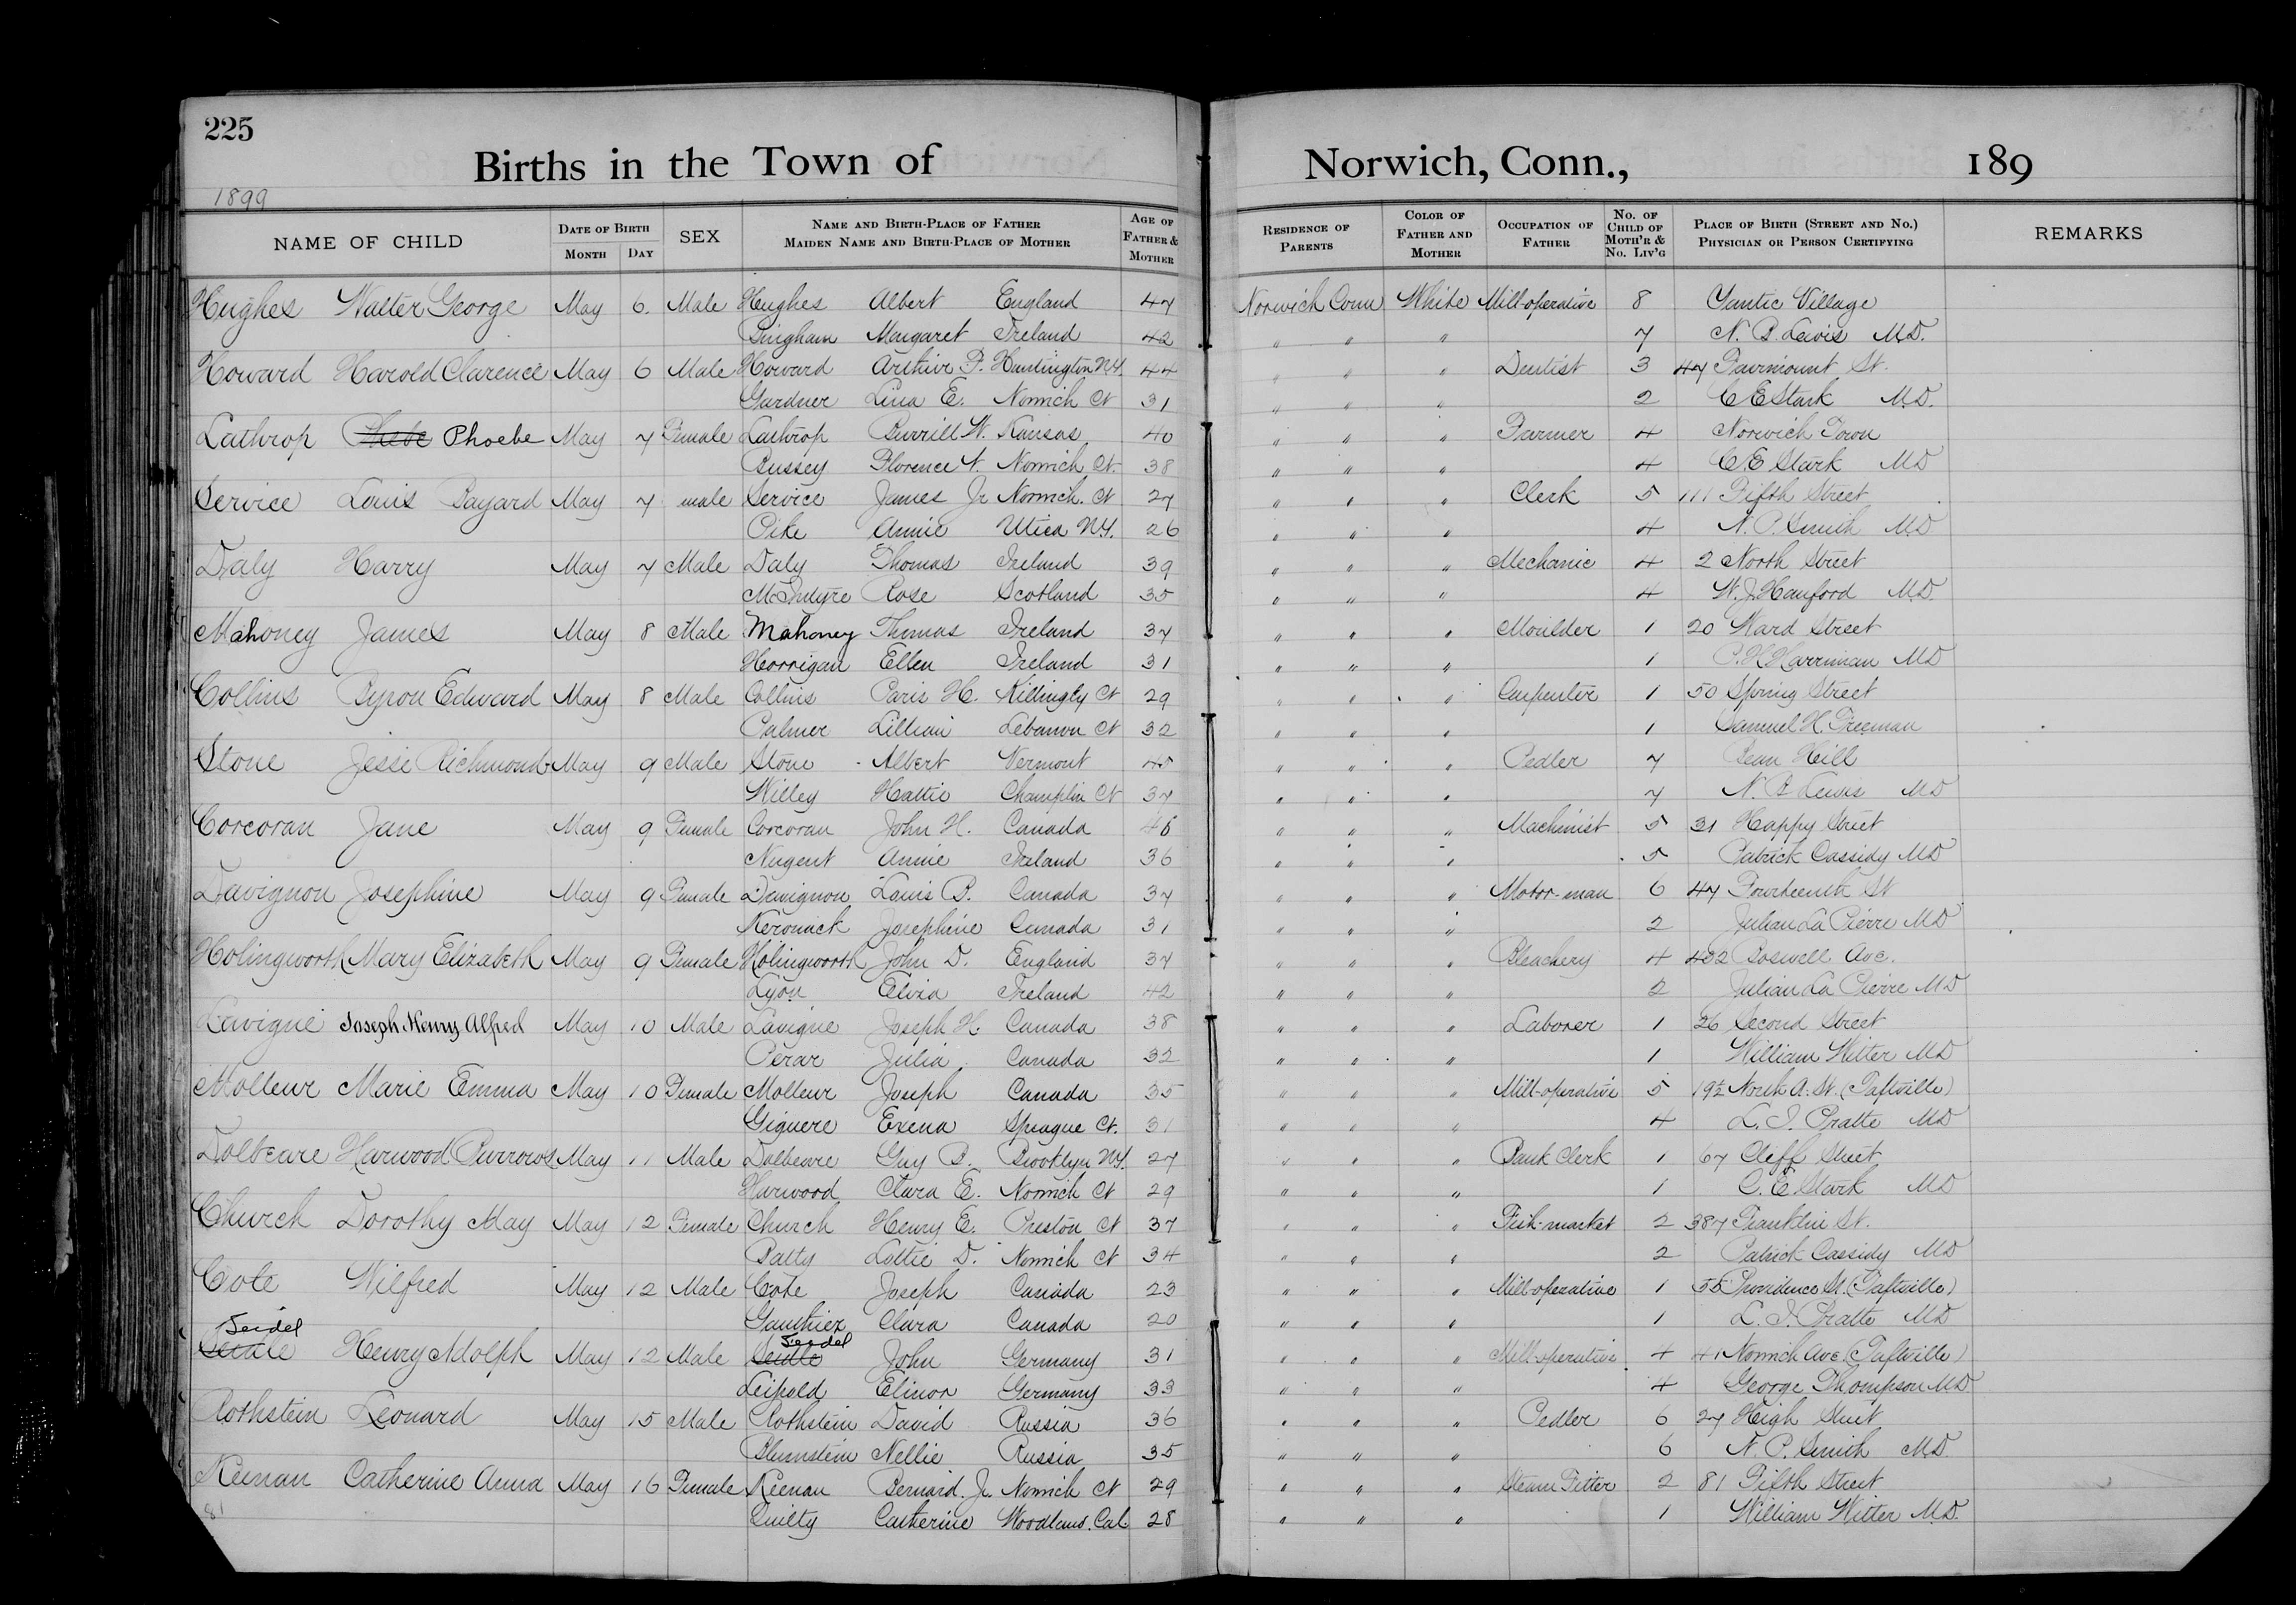 225
Births in the Town of Norwich, Conn., 189
1899
NAME OF CHILD DATE OF BIRTH MONTH DAY SEX NAME AND BIRTH-PLACE OF FATHER MAIDEN NAME AND BIRTH-PLACE OF MOTHER AGE OF FATHER & MOTHER RESIDENCE OF PARENTS COLOR OF FATHER AND MOTHER OCCUPATION OF FATHER NO. OF CHILD OF MOTH'R & NO. LIV'G PLACE OF BIRTH (STREET AND NO.) PHYSICIAN OR PERSON CERTIFYING REMARKS
Hughes Walter George May 6. Male Hughes Albert England 47 Norwich Conn White Mill-operative 8 Yantic Village
Bingham Margaret Ireland 42 " " " 7 N. B. Lewis M.D.
Howard Harold Clarence May 6 Male Howard Arthur P. Huntington N.Y. 44 " " " Dentist 3 47 Fairmount St.
Gardner Lina E. Norwich Ct 31 " " " 2 C E Stark M.D.
Lathrop Phebe Phoebe May 7 Female Lathrop Burrill W. Kansas 40 " " " Farmer 4 Norwich Town
Bussey Florence Norwich Ct. 38 " " " 4 C. E Stark MD
Service Louis Bayard May 7 male Service James Jr Norwich. Ct 27 " " " Clerk 5 111 Fifth Street
Pike Annie Utica N.Y. 26 " " " 4 N. P. Smith MD
Daly Harry May 7 Male Daly Thomas Ireland 39 " " " Mechanic 4 2 North Street
McIntyre Rose Scotland 35 " " " 4 W. J. Hanford M.D.
Mahoney James May 8 Male Mahoney Thomas Ireland 37 " " " Moulder 1 20 Ward Street
Horrigan Ellen Ireland 31 " " " 1 P. H Harriman MD
Collins Byron Edward May 8 Male Collins Paris H. Killingly Ct 29 " " " Carpenter 1 50 Spring Street
Palmer Lillian Lebanon Ct 32 " " " 1 Samuel H. Freeman
Stone Jesse Richmond May 9 Male Stone Albert Vermont 45 " " " Pedler 7 Bean Hill
Willey Hattie Champlin Ct 37 " " " 7 N. B Lewis MD
Corcoran Jane May 9 Female Corcoran John H. Canada " " " Machinist 5 31 Happy Street
Nugent Annie Ireland 36 " " " 5 Patrick Cassidy MD
Davignon Josephine May 9 Female Davignon Louis B. Canada 37 " " " Motor-man 6 47 Fourteenth St
Kerouack Josephine Canada 31 " " " 2 Julian La Pierre MD
Holingworth Mary Elizabeth May 9 Female Holingworth John D. England 37 " " " Bleachery 4 402 Boswell Ave.
Lyon Elvia Ireland 42 " " " 2 Julian La Pierre MD
Lavigne Joseph Henry Alfred May 10 Male Lavigne Joseph H. Canada 38 " " " Laborer 1 26 Second Street
Perar Julia Canada 32 " " " 1 William Witter MD
Molleur Marie Emma May 10 Female Molleur Joseph Canada 35 " " " Mill-operative 5 North A. St. (Taftville)
Giguere Exena Sprague Ct. 31 " " " 4 L. I. Pratte MD
Dolbeare Harwood Burrows May 11 Male Dolbeare Guy B. Brooklyn N.Y. 27 " " " Bank Clerk 1 67 Cliff Street
Harwood Clara E. Norwich Ct 29 " " " 1 C. E. Stark MD
Church Dorothy May May 12 Female Church Henry E. Preston Ct 37 " " " Fish-market 2 387 Franklin St.
Batty Lottie D. Norwich Ct 34 " " " 2 Patrick Cassidy MD
Cote Wilfred May 12 Male Cote Joseph Canada 23 " " " Mill-operative 1 55 Providence St. (Taftville)
Gauthier Clara Canada 20 " " " 1 L. I. Pratte MD
Seidel Seidel
Seidle Henry Adolph May 12 Male Seidle John Germany 31 " " " Mill-operative 4 41 Norwich Ave. (Taftville)
Leipold Elinor Germany 33 " " " 4 George Thompson MD
Rothstein Leonard May 15 Male Rothstein David Russia 36 " " " Pedler 6 27 High Street
Blumstein Nellie Russia 35 " " " 6 N. P. Smith M.D.
Keenan Catherine Anna May 16 Female Keenan Bernard. Jr. Norwich Ct 29 " " " Steam Fitter 2 81 Fifth Street
Quilty Catherine Woodland. Cal 28 " " " 1 William Witter M.D.
81